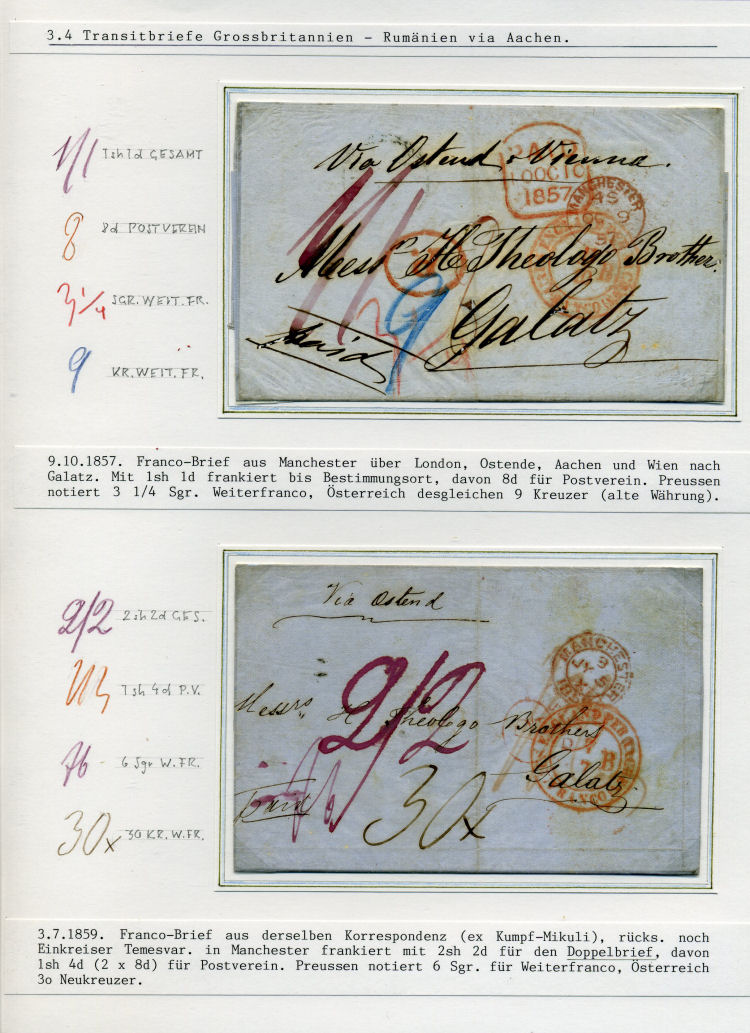 3.4 Transitbriefe Grossbritannien - Rumänien via Aachen.
1/1 1sh1d GESAMT
8 8d POSTVEREIN
3 1/4 SGR. WEIT. FR.
9 KR. WEIT. FR.
Via Ostend & Vienna.
PAID
10 OC 10
1857
MANCHESTER
1/1
Messrs H Theologo Brothers
9
Galatz
Paid
9.10.1857. Franco-Brief aus Manchester über London, Ostende, Aachen und Wien nach
Galatz. Mit 1sh 1d frankiert bis Bestimmungsort, davon 8d für Postverein. Preussen
notiert 3 1/4 Sgr. Weiterfranco, Österreich desgleichen 9 Kreuzer (alte Währung).
2/2 2sh2d GES.
1sh 4d P.V.
6 Sgr W.FR.
30x 30 KR.W.FR.
Via Ostend
MANCHESTER
2/2
Messrs H Theologo Brothers
Galatz
FRANCO
Paid
30x
3.7.1859. Franco-Brief aus derselben Korrespondenz (ex Kumpf-Mikuli), rücks. noch
Einkreiser Temesvar. in Manchester frankiert mit 2sh 2d für den Doppelbrief, davon
1sh 4d (2 x 8d) für Postverein. Preussen notiert 6 Sgr. für Weiterfranco, Österreich
3o Neukreuzer.